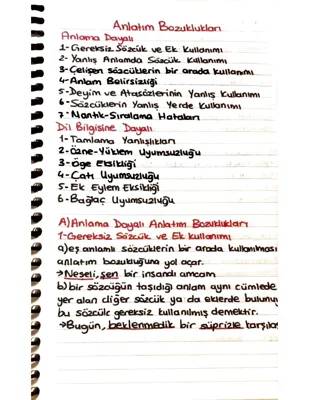 Anlatım Bozuklukları
Anlama Dayalı
1- Gereksiz Sözcük ve Ek Kullanımı
2- Yanlış Anlamda Sözcük Kullanımı
3- Çelişen sözcüklerin bir arada kullanımı
4- Anlam Belirsizliği
5- Deyim ve Atasözlerinin Yanlış Kullanımı
6- Sözcüklerin Yanlış Yerde Kullanımı
7- Mantık-Sıralama Hataları
Dil Bilgisine Dayalı
1- Tamlama Yanlışlıkları
2- Özne-Yüklem Uyumsuzluğu
3- Öge Eksikliği
4- Çatı Uyumsuzluğu
5- Ek Eylem Eksikliği
6- Bağlaç Uyumsuzluğu
A) Anlama Dayalı Anlatım Bozuklukları
1- Gereksiz Sözcük ve Ek Kullanımı
a) eş anlamlı sözcüklerin bir arada kullanılması
anlatım bozukluğuna yol açar.
→ Neşeli, şen bir insandı amcam
b) bir sözcüğün taşıdığı anlam aynı cümlede
yer alan diğer sözcük ya da eklerde bulunu
bu sözcük gereksiz kullanılmış demektir.
→ Bugün, beklenmedik bir süprizle karşıla